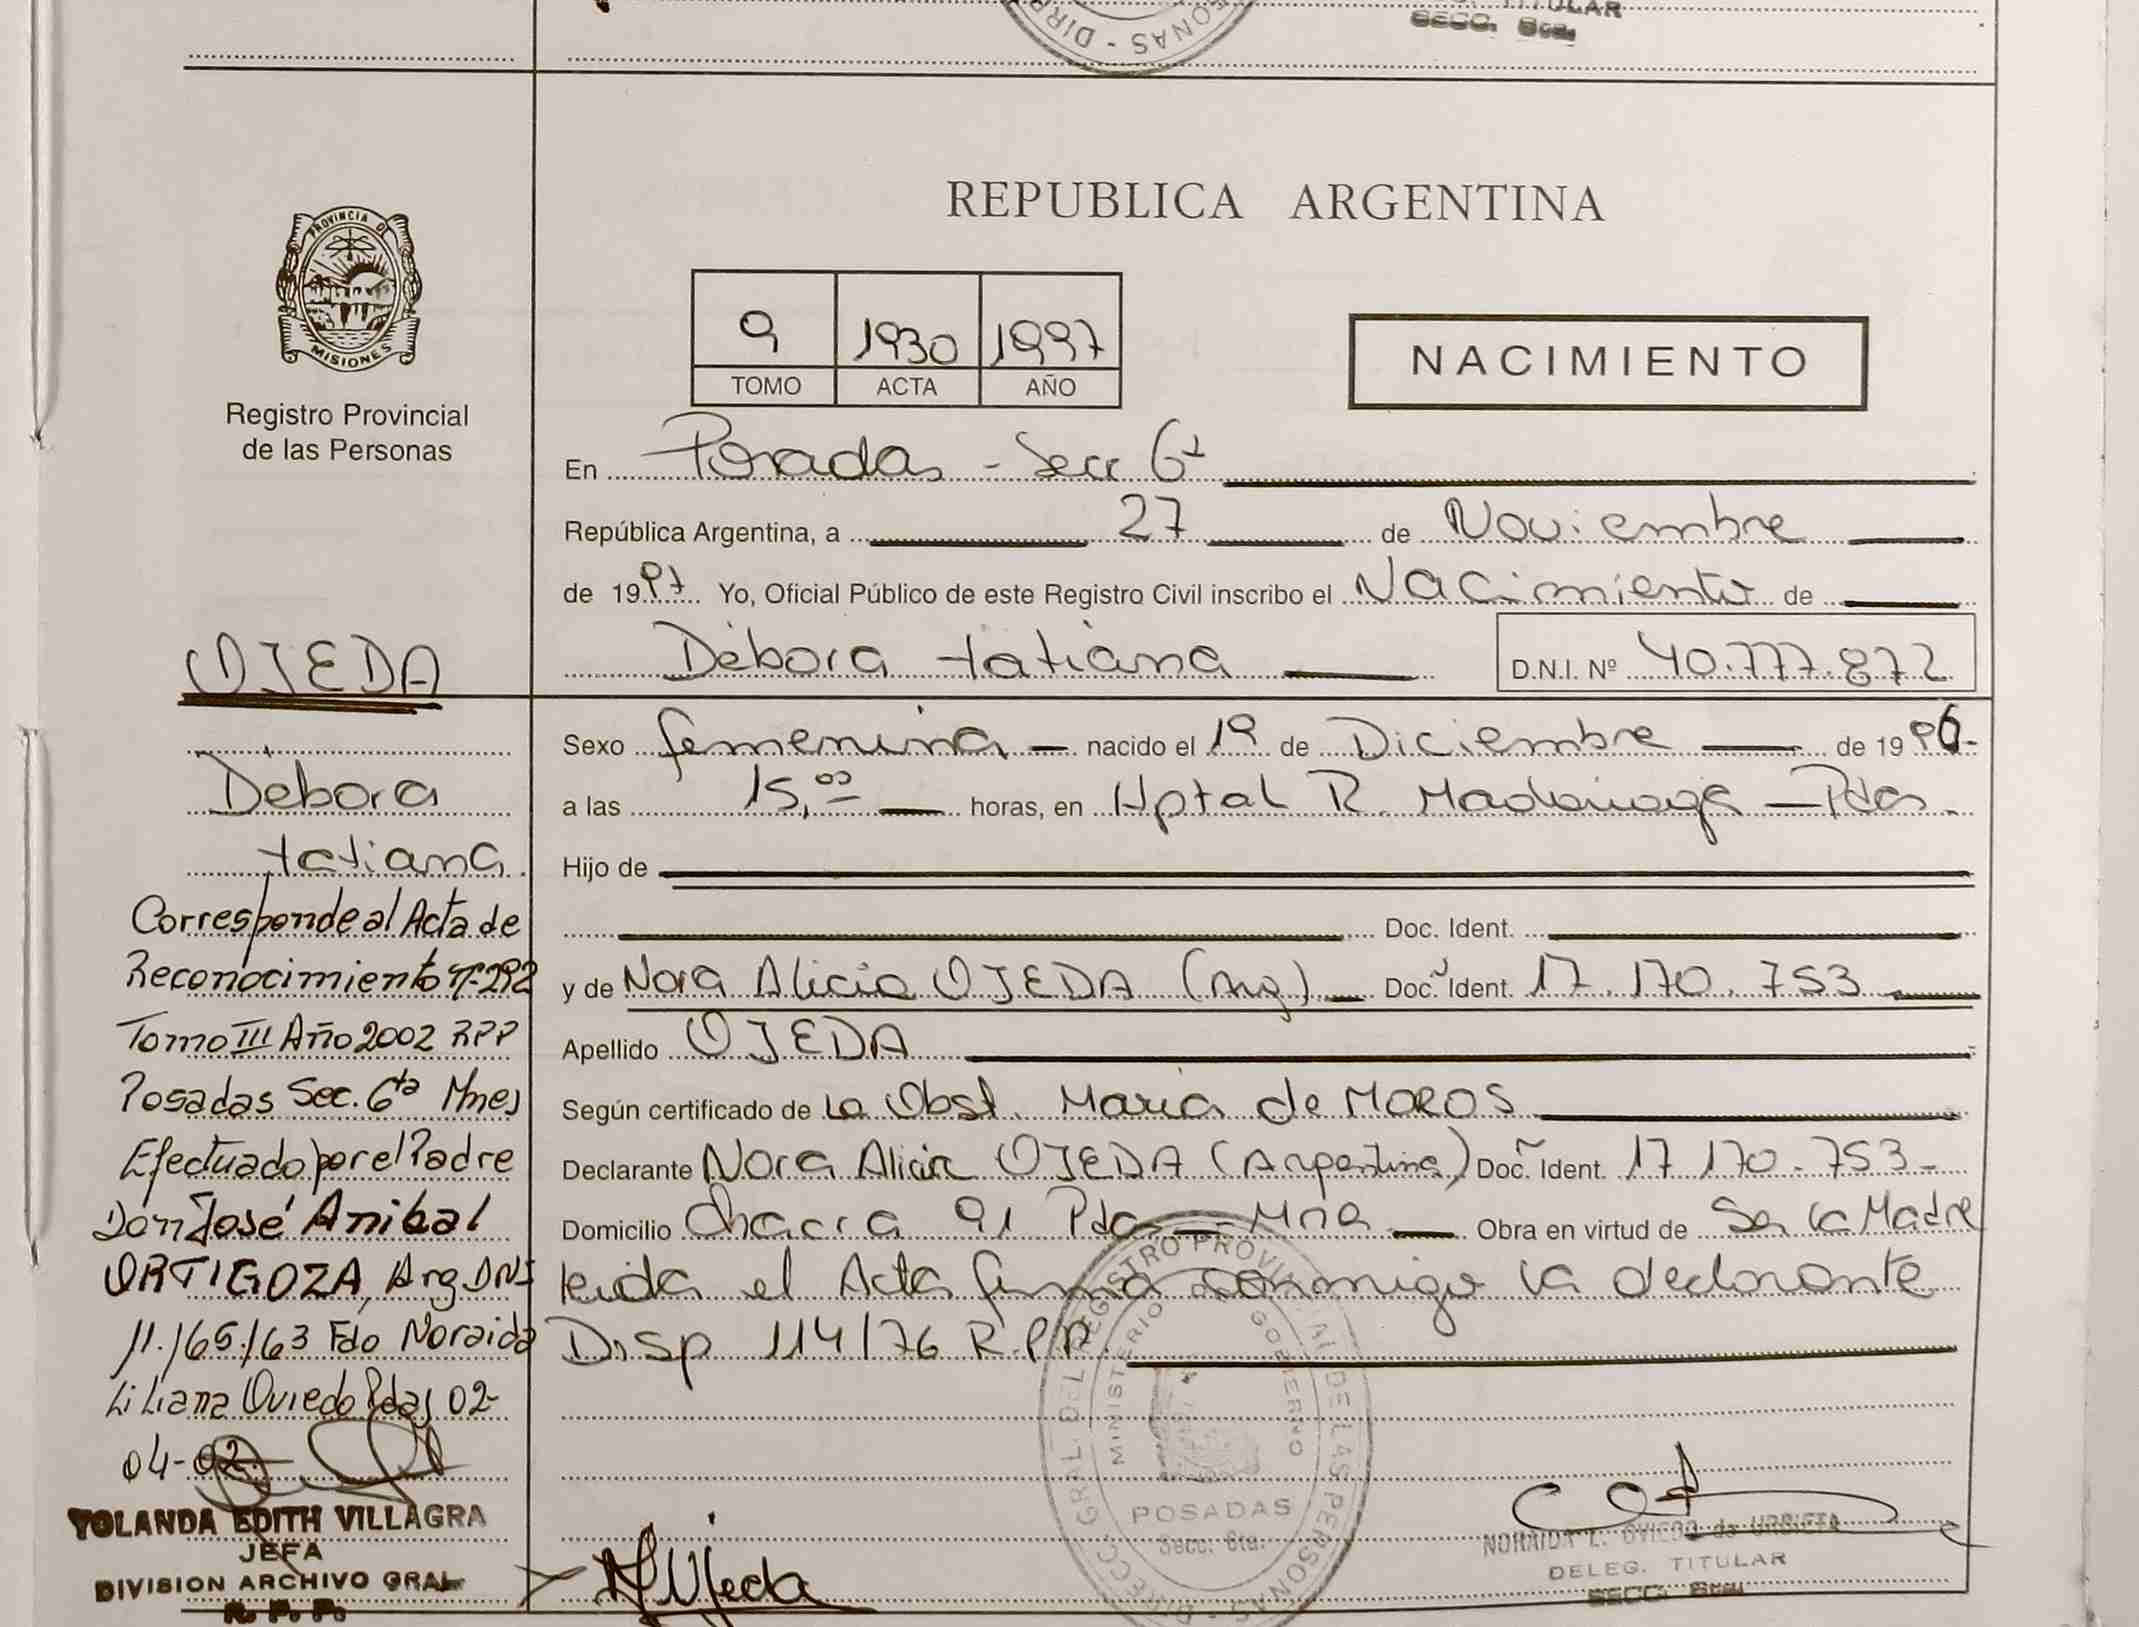 TITULAR
SECC. 6ta.
DIRECC
PERSONAS - DIR
PROVINCIA DE
MISIONES
Registro Provincial
de las Personas
OJEDA
Débora
tatiana
Corresponde al Acta de
Reconocimiento Nº 292
Tomo III Año 2002 RPP
Posadas Sec. 6ta Mnes
Efectuado por el Padre
Don José Anibal
ORTIGOZA, Arg DNI
11.165.163 Fdo Noraida
Liliana Oviedo Pdas 02-
04-02.
YOLANDA EDITH VILLAGRA
JEFA
DIVISION ARCHIVO GRAL
R. P. P.
REPUBLICA ARGENTINA
9 1930 1997
TOMO ACTA AÑO
NACIMIENTO
En Posadas - Secc 6ª
República Argentina, a 27 de Noviembre
de 1997 Yo, Oficial Público de este Registro Civil inscribo el Nacimiento de
Débora tatiana D.N.I. Nº 40.777.872
Sexo femenina nacido el 19 de Diciembre de 1996-
a las 15,00 horas, en Hptal R. Madariaga - Pdas.
Hijo de
Doc. Ident.
y de Nora Alicia OJEDA (Arg) Doc. Ident. 17.170.753
Apellido OJEDA
Según certificado de la Obst. Maria de MOROS
Declarante Nora Alicia OJEDA (Argentina) Doc. Ident. 17 170.753-
Domicilio Chacra 91 Pdas - Mnes Obra en virtud de Ser la Madre
leida el Acta firma conmigo la declarante
Disp 114/76 R.P.P.
DIRECC. GRAL. DEL REGISTRO PROVINCIAL DE LAS PERSONAS
MINISTERIO DE GOBIERNO
POSADAS
Secc. 6ta.
N Ojeda
NORAIDA L. OVIEDO de URBIETA
DELEG. TITULAR
SECC. 6ta.